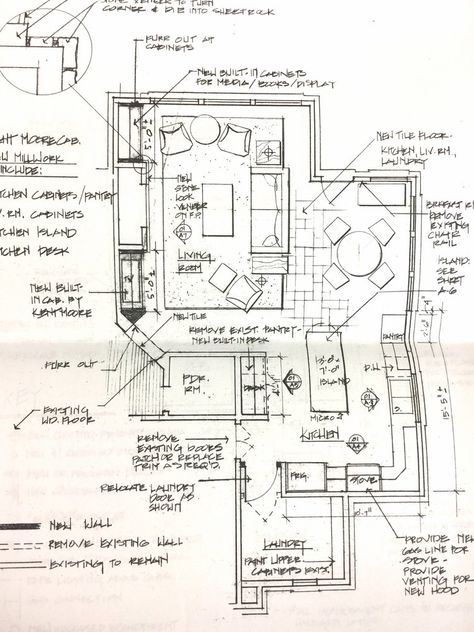 STONE VENEER TO TURN
CORNER & DIE INTO SHEETROCK
FURR OUT AT
CABINETS
NEW BUILT-IN CABINETS
FOR MEDIA/BOOKS/DISPLAY
MOORE CAB.
MILLWORK
INCLUDE:
KITCHEN CABINETS/PANTRY
RM. CABINETS
KITCHEN ISLAND
KITCHEN DESK
5'-0"±
NEW
STONE
LOOK
VENEER
ON F.P.
LIVING
ROOM
NEW TILE FLOOR-
KITCHEN, LIV. RM.,
LAUNDRY
REMOVE
EXISTING
CHAIR
RAIL
ISLAND:
SEE
SHEET
A-6
NEW BUILT-
IN CAB. BY
KENT MOORE
5'-0"±
NEW TILE
REMOVE EXIST. PANTRY-
NEW BUILT-IN DESK
FURR OUT
PDR.
RM.
DESK
7'-0"
ISLAND
MICRO
PANTRY
D.W.
15'-5"±
EXISTING
WD. FLOOR
REMOVE
EXISTING DOORS
PATCH OR REPLACE
TRIM AS REQ'D.
KITCHEN
RELOCATE LAUNDRY
DOOR AS
SHOWN
FRIG.
STOVE
NEW WALL
REMOVE EXISTING WALL
EXISTING TO REMAIN
LAUNDRY
PAINT UPPER
CABINETS EXIST.
PROVIDE NEW
GAS LINE FOR
STOVE-
PROVIDE
VENTING FOR
NEW HOOD